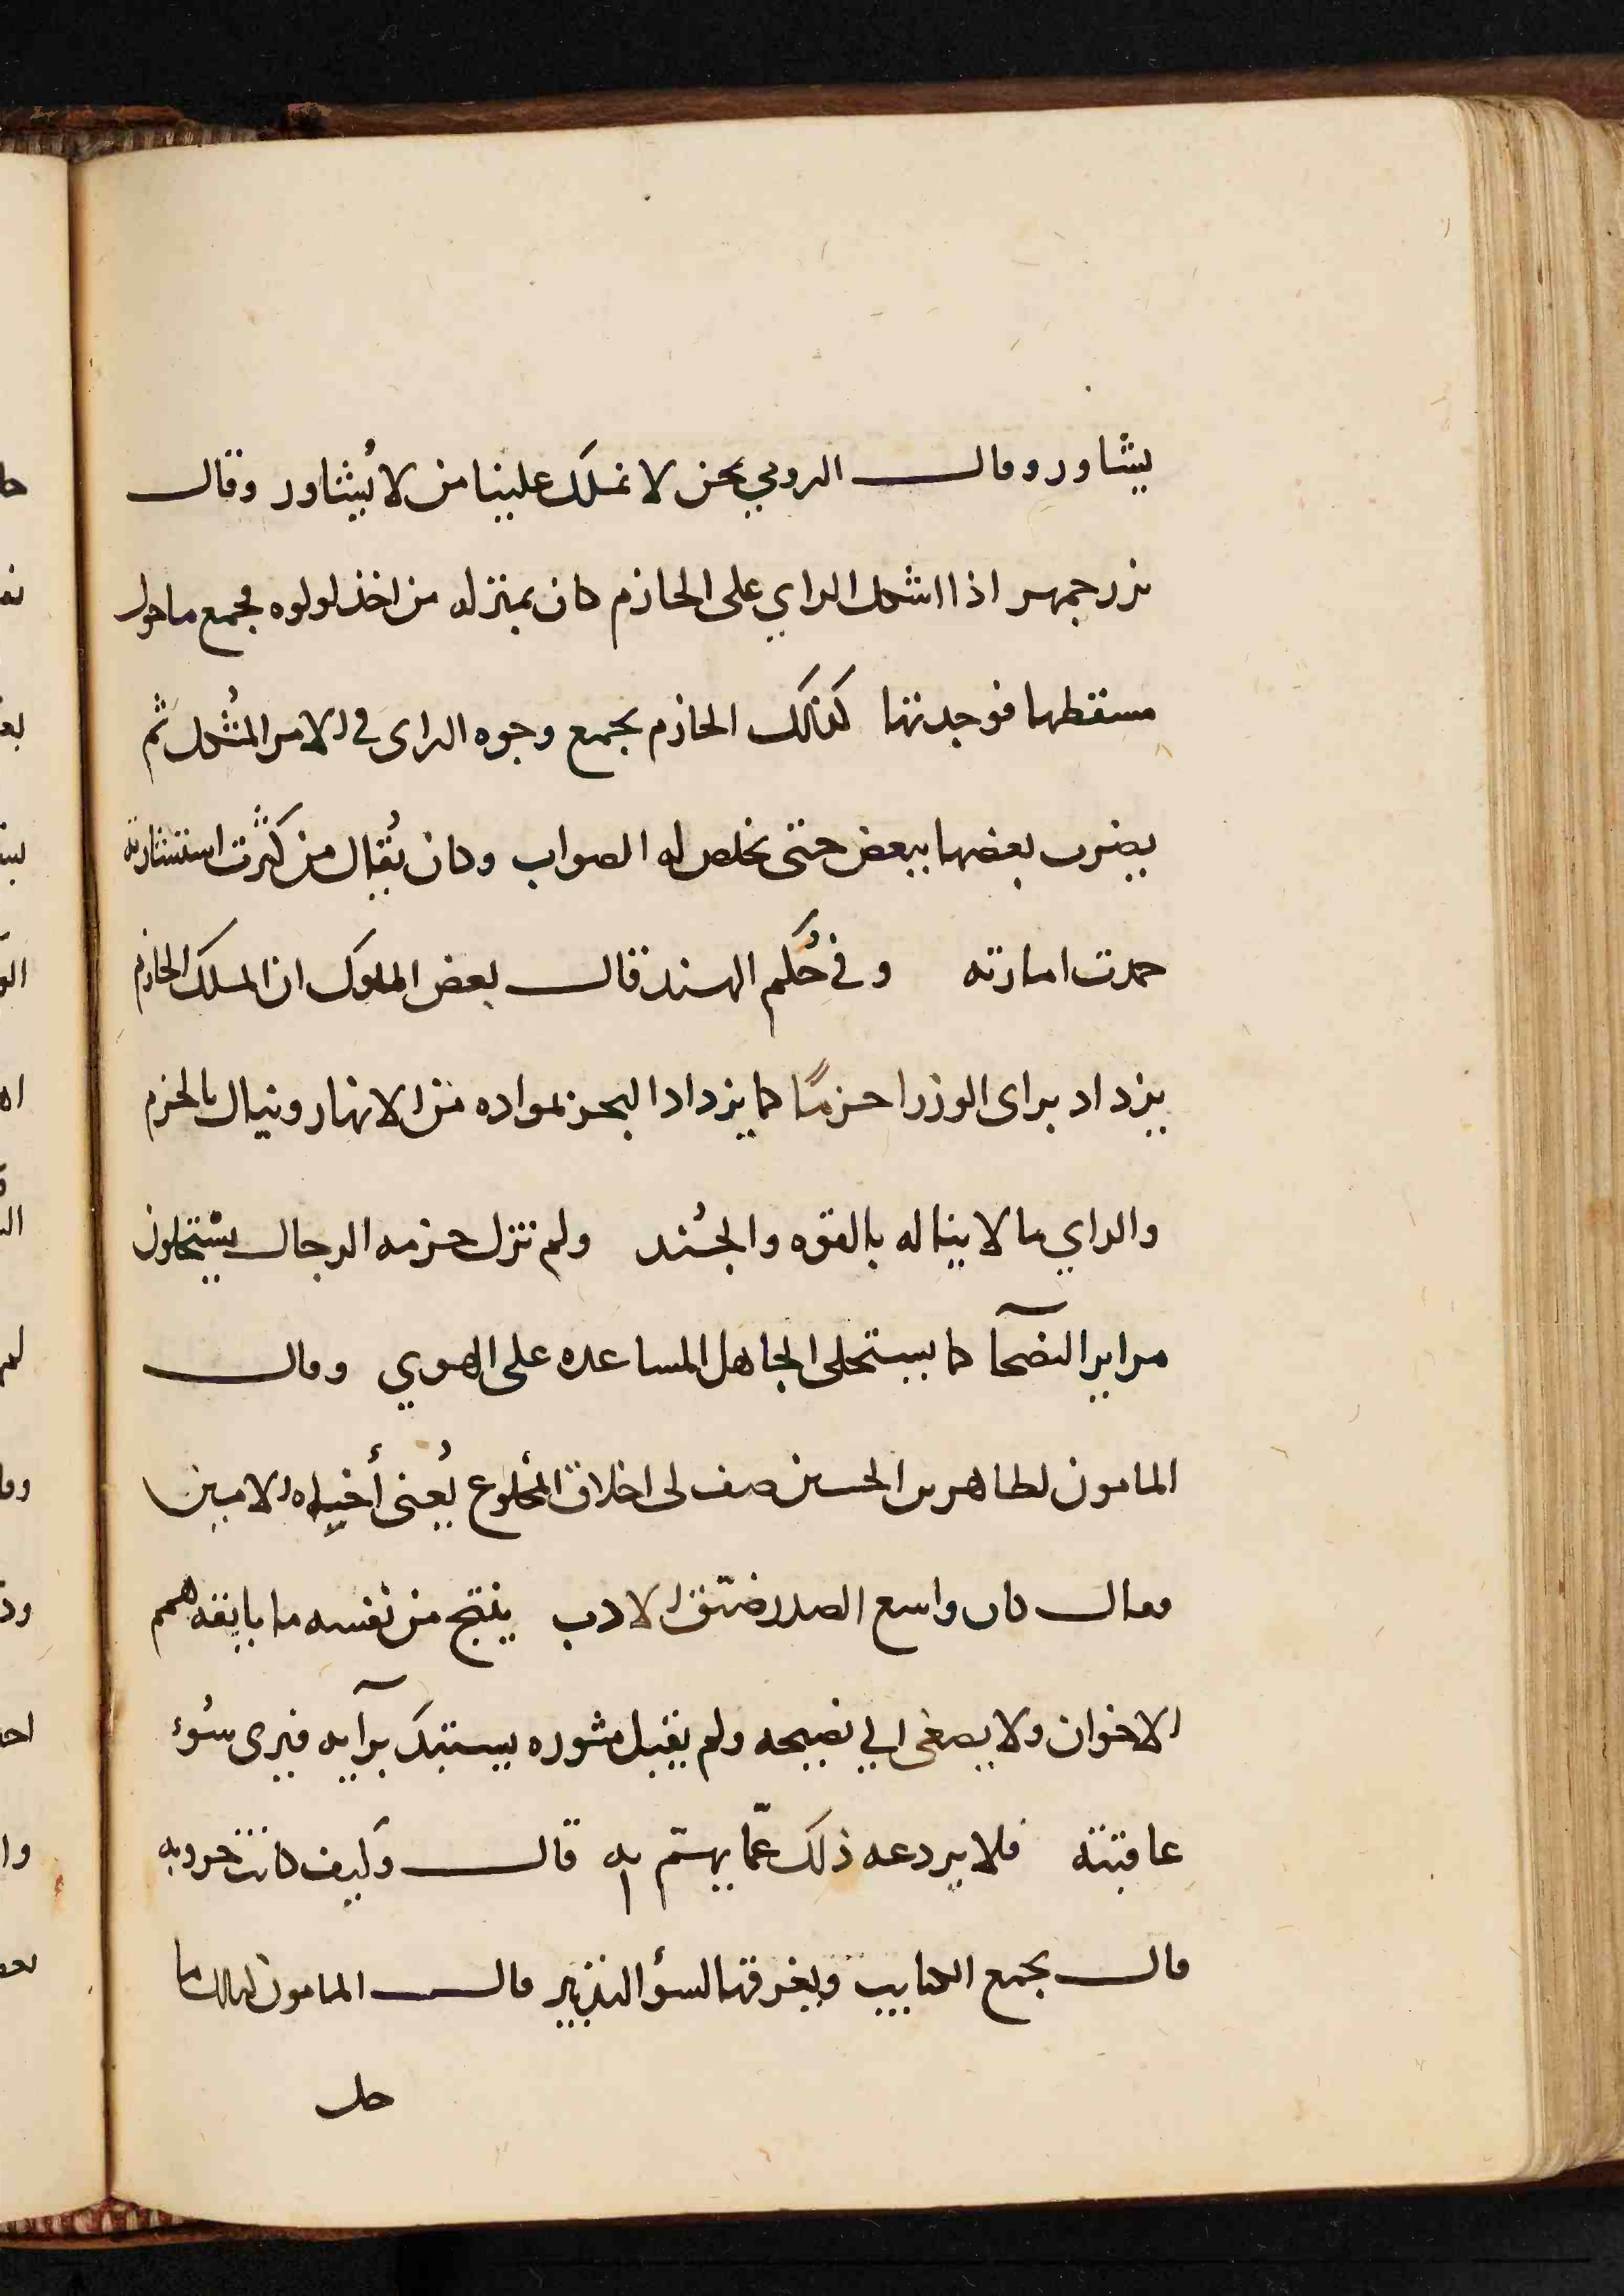 يشاور وقال الرومي نحن لا نملك علينا من لا يُشاور وقال
بزرجمهر اذا اشكل الراي على الحازم كان بمنزله من اخذ لولوه فجمع ما حول
مسقطها فوجدتها كذلك الحازم يجمع وجوه الراى في الامر المُشكل ثم
يضرب بعضها ببعض حتى يخلص له الصواب وكان يُقال من كثُرت استشارته
حمدت امارته وفي حُكم الهند قال بعض الملوك ان الملك الحازم
يزداد براى الوزرا حزمًا كما يزداد البحر بمواده من الانهار وينال بالحزم
والراي ما لا يناله بالقوه والجُند ولم تزل حزمه الرجال يستحلون
مراير النصحآ كما يستحلى الجاهل المساعده على الهوي وقال
المامون لطاهر بن الحسين صف لى اخلاق المخلوع يُعنى أخيه الامين
فقال كان واسع الصدر ضيّق الادب ينتج من نفسه ما يانفه همم
الاخوان ولا يصغى الي نصيحه ولم يقبل مشوره يستبد برآيه فيرى سُوء
عاقبته فلا يردعه ذلك عمّا يهتم به قال وكيف كانت حروبه
قال يجمع الكتايب ويفرقها لسؤ التدبير قال المامون لذلك ما
حل